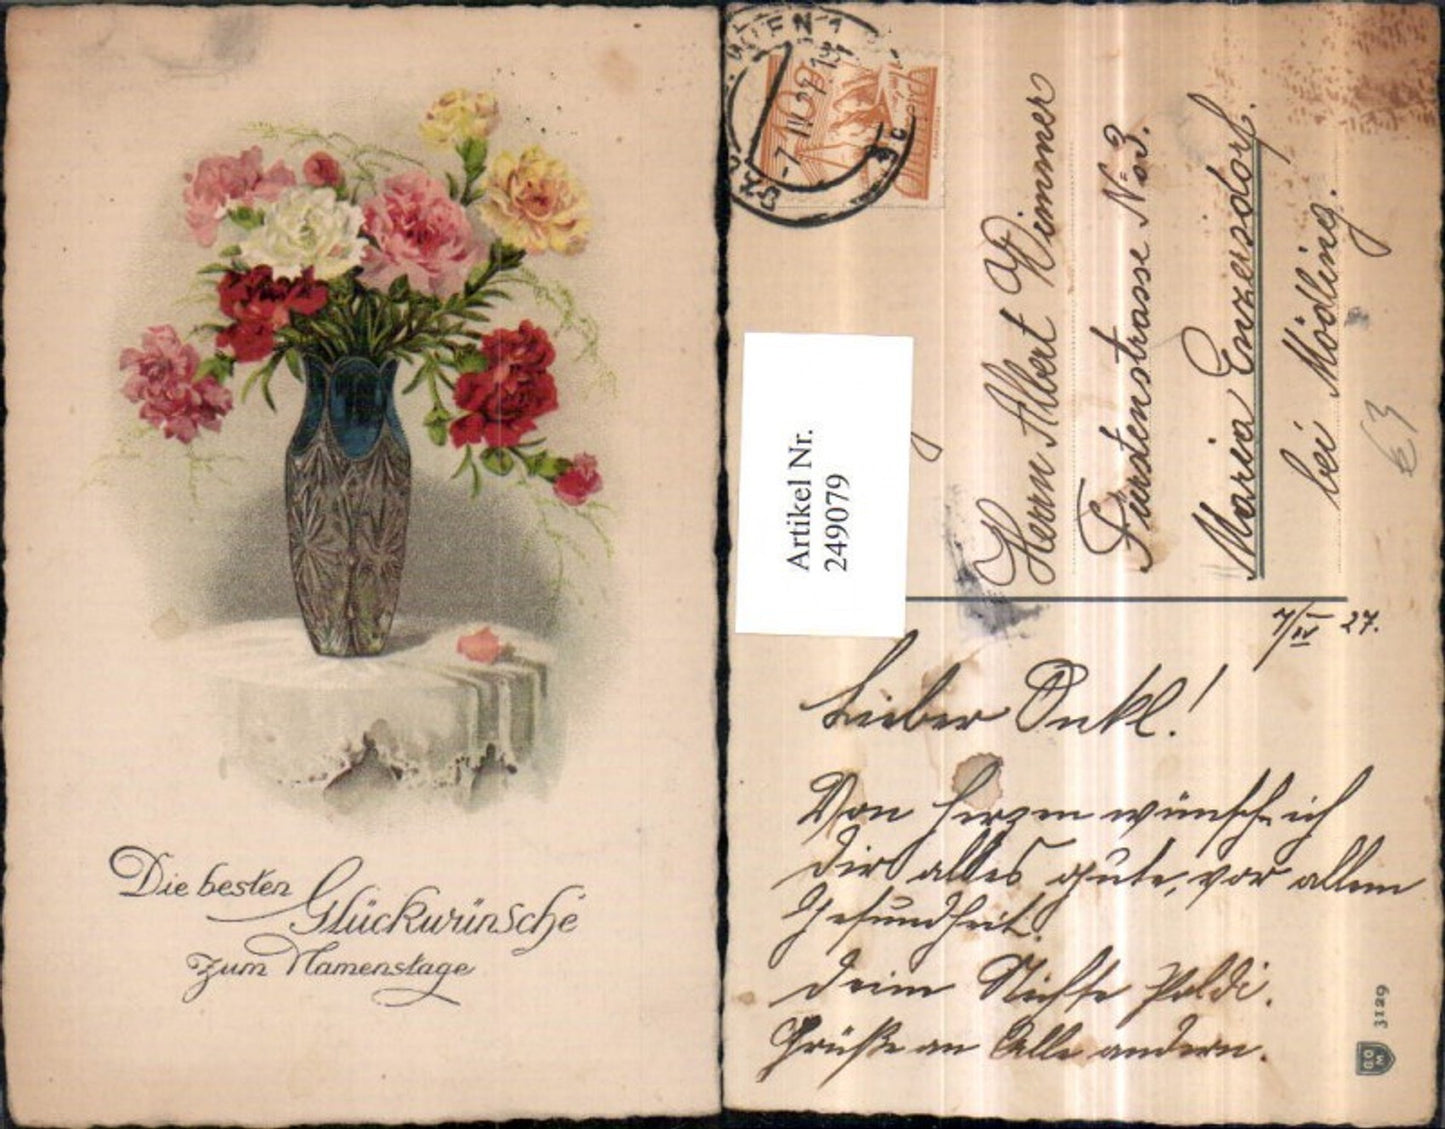 Die besten
Glückwünsche
zum Namenstage
WIEN 1
-7.IV.27
Artikel Nr.
249079
Herrn Albert Wimmer
Fürstenstrasse No 3.
Maria Enzersdorf.
bei Mödling.
€3
7/IV 27.
Lieber Onkel!
Von Herzen wünsche ich
dir alles gute, vor allem
Gesundheit.
deine Nichte Poldi.
Grüße an Alle andern.
3129
GOM